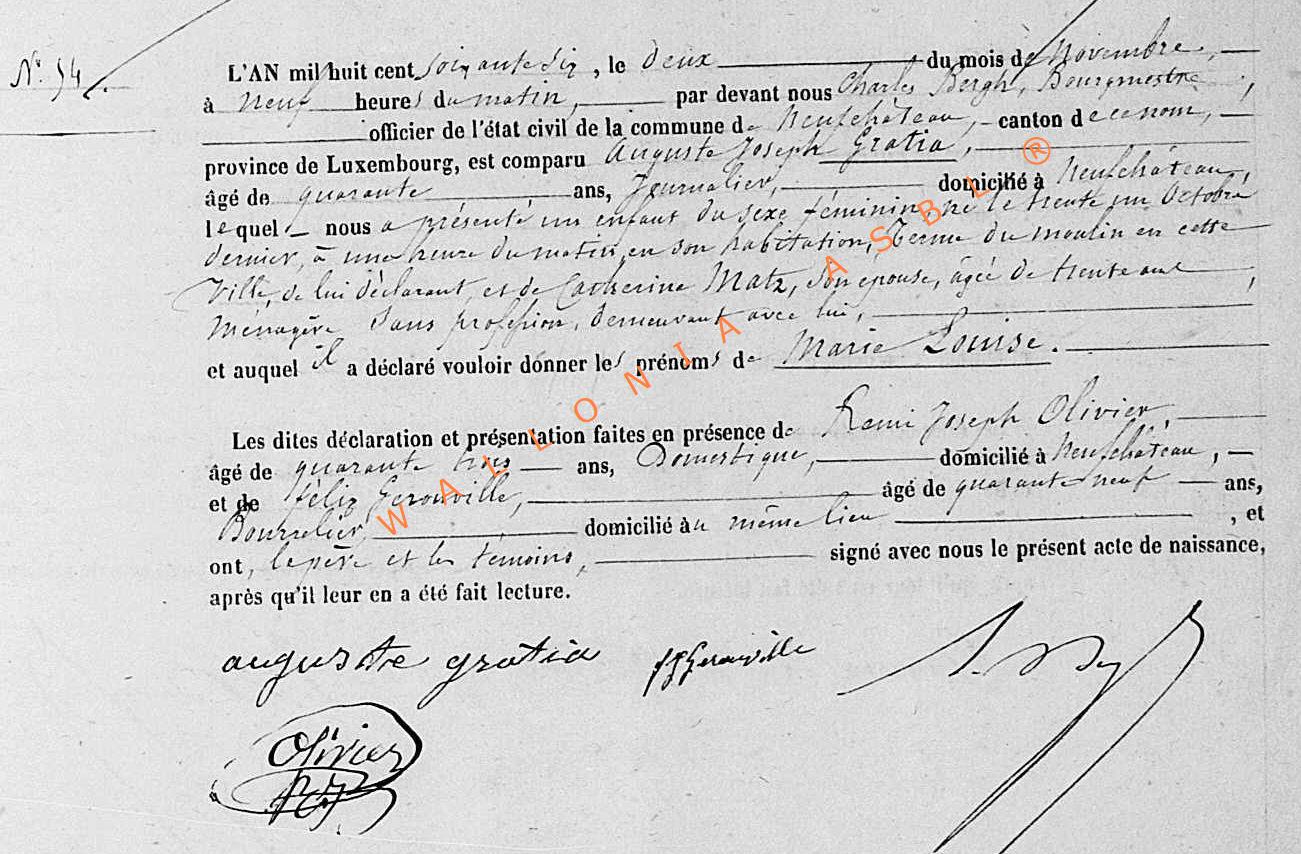 N° 54
L'AN mil huit cent soixante six, le deux du mois de Novembre,
à neuf heures du matin, par devant nous Charles Bergh, Bourgmestre,
officier de l'état civil de la commune de Neufchâteau, canton de ce nom,
province de Luxembourg, est comparu Auguste Joseph Gratia,
âgé de quarante ans, Journalier, domicilié à Neufchâteau,
lequel nous a présenté un enfant du sexe féminin, né le trente un Octobre
dernier, à une heure du matin, en son habitation, ferme du moulin en cette
Ville, de lui déclarant, et de Catherine Matz, son épouse, âgée de trente ans
Ménagère sans profession, demeurant avec lui,
et auquel il a déclaré vouloir donner les prénoms de Marie Louise.
Les dites déclaration et présentation faites en présence de Remi Joseph Olivier,
âgé de quarante trois ans, Domestique, domicilié à Neufchâteau,
et de félix Gerouville, âgé de quarante neuf ans,
Bourrelier, domicilié au même lieu, et
ont, le père et les témoins, signé avec nous le présent acte de naissance,
après qu'il leur en a été fait lecture.
auguste gratia
Gerouville
Olivier
WALLONIA ASBL ®